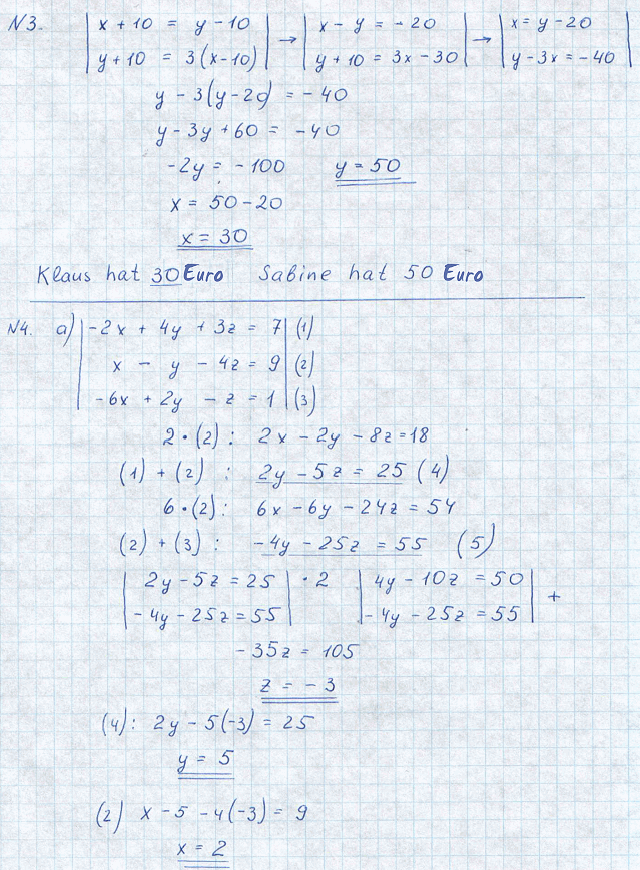 N3. | x + 10 = y - 10 | → | x - y = - 20 | → | x = y - 20 |
| y + 10 = 3(x-10) | | y + 10 = 3x - 30 | | y - 3x = - 40 |
y - 3(y-20) = - 40
y - 3y + 60 = - 40
-2y = - 100 y = 50
x = 50 - 20
x = 30
Klaus hat 30 Euro Sabine hat 50 Euro
N4. a) | -2x + 4y + 3z = 7 | (1)
| x - y - 4z = 9 | (2)
| -6x + 2y - z = 1 | (3)
2 · (2) : 2x - 2y - 8z = 18
(1) + (2) : 2y - 5z = 25 (4)
6 · (2) : 6x - 6y - 24z = 54
(2) + (3) : -4y - 25z = 55 (5)
| 2y - 5z = 25 | · 2 | 4y - 10z = 50 | +
| - 4y - 25z = 55 | | - 4y - 25z = 55 |
- 35z = 105
z = - 3
(4) : 2y - 5(-3) = 25
y = 5
(2) x - 5 - 4(-3) = 9
x = 2